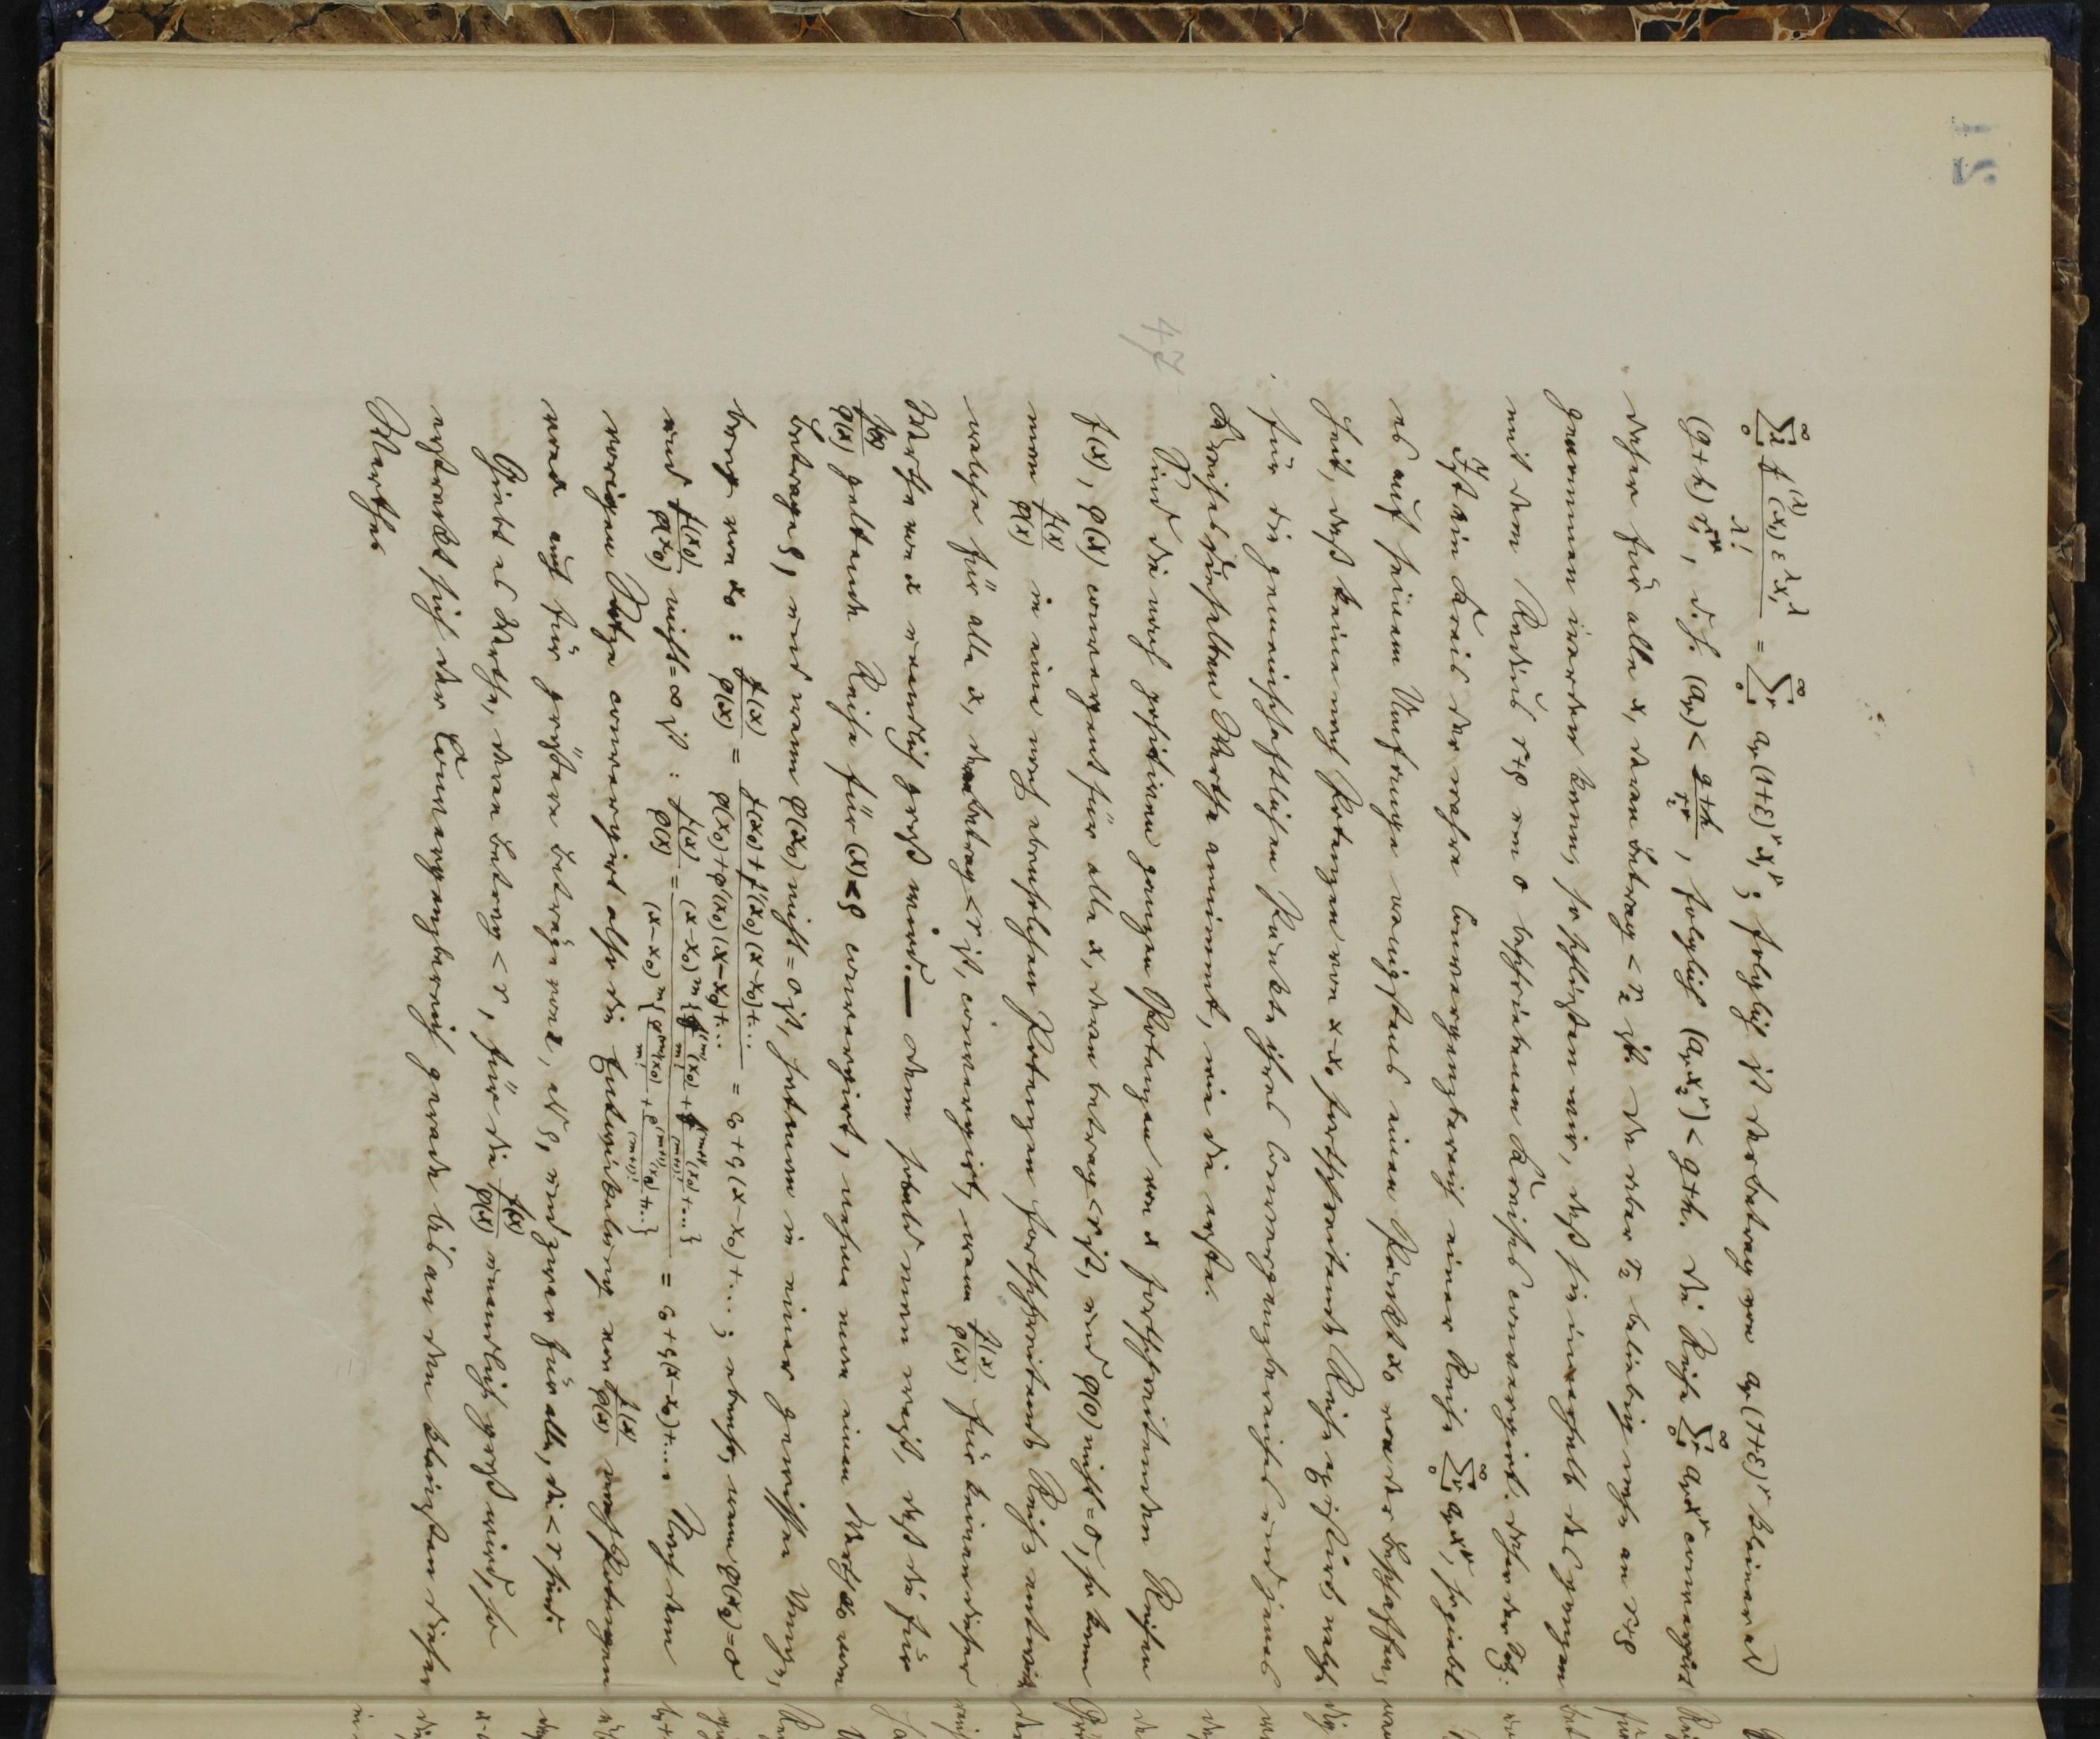 $\sum_0^\infty{}_\lambda \frac{f^{(\lambda)}(x_1) \varepsilon^\lambda x_1^\lambda}{\lambda!} = \sum_0^\infty{}_\nu a_\nu (1+\varepsilon)^\nu x_1^\nu$; folglich ist der Betrag von $a_\nu (1+\varepsilon)^\nu$ kleiner als
$(g+h) r_1^{-\nu}$, d.h. $(a_\nu) < \frac{g+h}{r_2^\nu}$, folglich $(a_\nu x_2^\nu) < g+h$. Die Reihe $\sum_0^\infty{}_\nu a_\nu x^\nu$ convergirt
daher für alle x, deren Betrag < r_2 ist. Da aber r_2 beliebig nahe an r+ρ
genommen werden kann, so schließen wir, daß sie innerhalb des ganzen
mit dem Radius r+ρ um 0 beschriebenen Kreises convergirt. Daher der Satz:
Ist ein Kreis der wahre Convergenzbereich einer Reihe $\sum_0^\infty{}_\nu a_\nu x^\nu$, so giebt
es auf seinem Umfange wenigstens einen Punkt x_0 von der Beschaffen-
heit, daß keine nach Potenzen von x-x_0 fortschreitende Reihe existirt, welche
für die gemeinschaftlichen Punkte ihres Convergenzbereiches und jenes
Kreises dieselben Werthe annimmt, wie die erste.
Sind die nach positiven ganzen Potenzen von x fortschreitenden Reihen
f(x), φ(x) convergent für alle x, deren Betrag < r ist, und φ(0) nicht = 0, so kann
man $\frac{f(x)}{φ(x)}$ in eine nach ebensolchen Potenzen fortschreitende Reihe entwickeln,
welche für alle x, deren Betrag < r ist, convergirt, wenn $\frac{f(x)}{φ(x)}$ für keinen dieser
Werthe von x unendlich groß wird. — Denn sobald man weiß, daß die für
$\frac{f(x)}{φ(x)}$ geltende Reihe für (x) < ρ convergirt, nehme man einen Werth x_0 vom
Betrage ρ, und wenn φ(x_0) nicht = 0 ist, hat man in einer gewissen Umge-
bung von x_0: $\frac{f(x)}{φ(x)} = \frac{f(x_0)+f'(x_0)(x-x_0)+...}{φ(x_0)+φ'(x_0)(x-x_0)+...} = c_0+c_1(x-x_0)+...$; ebenso, wenn φ(x_0)=0
und $\frac{f(x_0)}{φ(x_0)}$ nicht = ∞ ist: $\frac{f(x)}{φ(x)} = \frac{(x-x_0)^m\{\frac{f^{(m)}(x_0)}{m!}+\frac{f^{(m+1)}(x_0)}{(m+1)!}+...\}}{(x-x_0)^m\{\frac{φ^{(m)}(x_0)}{m!}+\frac{φ^{(m+1)}(x_0)}{(m+1)!}+...\}} = c_0+c_1(x-x_0)+...$. Nach dem
vorigen Satze convergirt also die Entwickelung von $\frac{f(x)}{φ(x)}$ nach Potenzen
von x auch für größere Beträge von x, als ρ, und zwar für alle, die < r sind.
Giebt es Werthe, deren Betrag < r, für die $\frac{f(x)}{φ(x)}$ unendlich groß wird, so
erstreckt sich der Convergenzbereich gerade bis an den kleinsten dieser
Werthe.
47